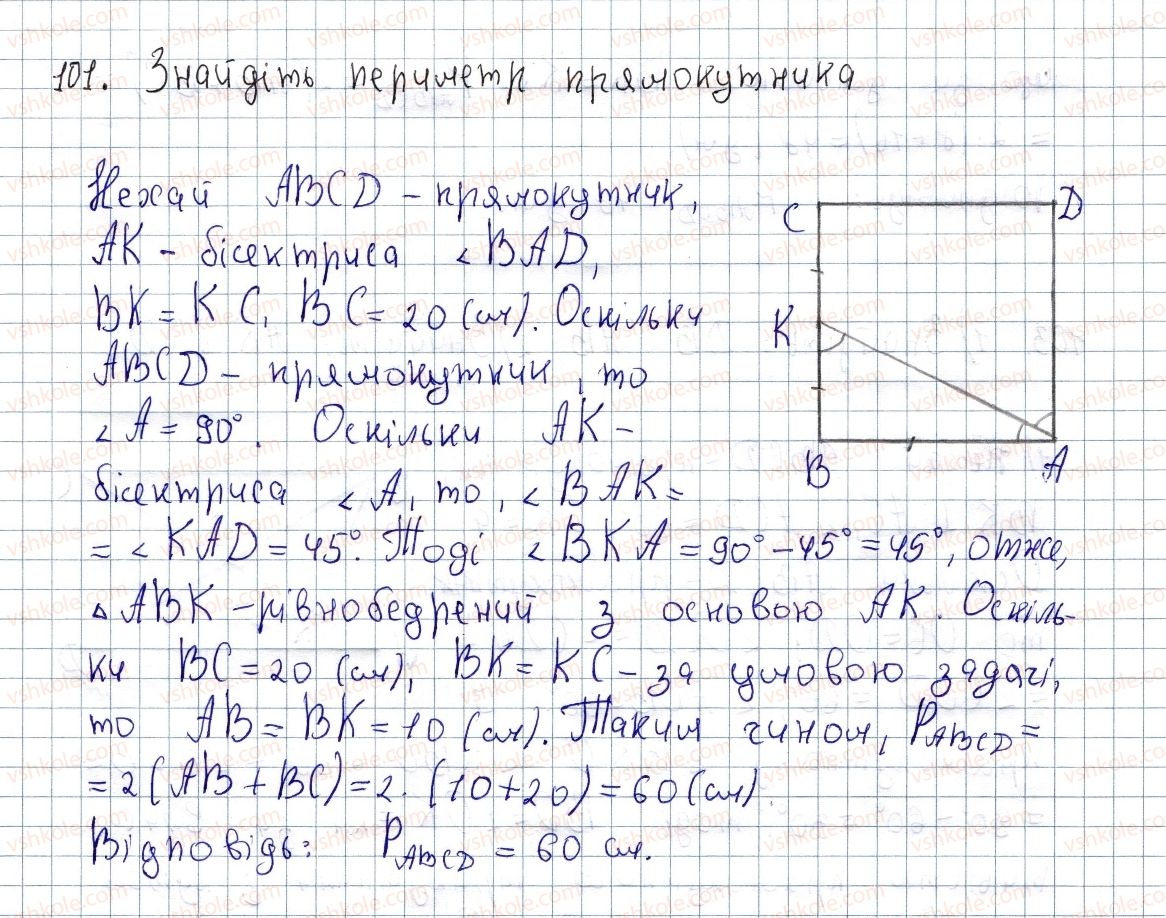 101. Знайдіть периметр прямокутника
Нехай ABCD – прямокутник,
AK – бісектриса ∠BAD,
BK = KC, BC = 20 (см). Оскільки
ABCD – прямокутник, то
∠A = 90°. Оскільки AK –
бісектриса ∠A, то, ∠BAK =
= ∠KAD = 45°. Тоді ∠BKA = 90° – 45° = 45°, отже,
△ABK – рівнобедрений з основою AK. Оскіль-
ки BC = 20 (см), BK = KC – за умовою задачі,
то AB = BK = 10 (см). Таким чином, P_ABCD =
= 2(AB + BC) = 2 · (10 + 20) = 60 (см).
Відповідь: P_ABCD = 60 см.
C
D
K
B
A
vshkole.com